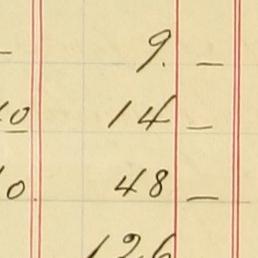 — 9. —
10 14 —
10. 48 —
126